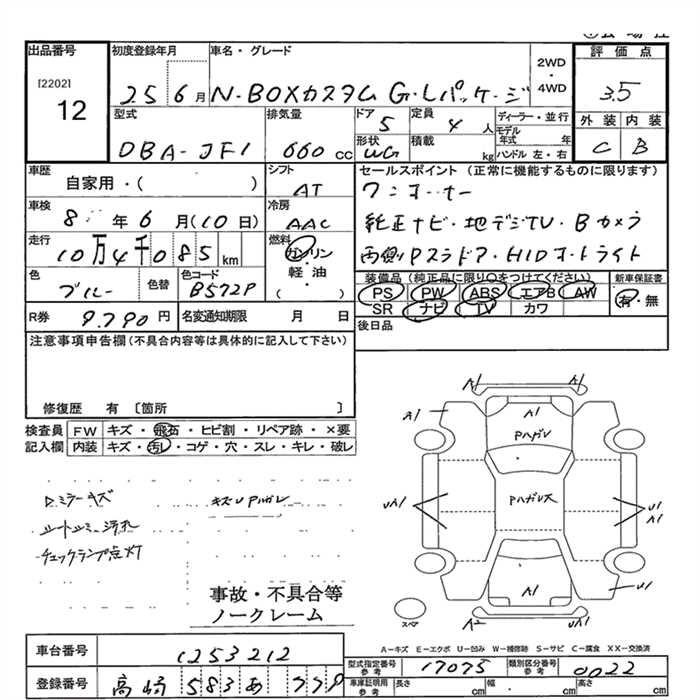 出品番号
[2202]
12
初度登録年月
25 6月
車名・グレード
N-BOXカスタム G・Lパッケージ
2WD
・
4WD
評価点
3.5
外装 内装
C B
型式
DBA-JF1
排気量
660 cc
ドア
5
定員
4 人
形状
WG
積載
kg
ディーラー・並行
モデル
年式 年
ハンドル 左・右
車歴
自家用・( )
シフト
AT
車検
8 年 6 月 (10日)
冷房
AAC
走行
10万4千085 km
燃料
ガソリン
・
軽油
( ・ )
色
ブルー
色替
色コード
B572P
R券
9.790 円
名変通知期限 月 日
セールスポイント (正常に機能するものに限ります)
ワンオーナー
純正ナビ・地デジTV・Bカメラ
両側Pスラドア・HIDオートライト
装備品(純正品に限り○をつけてください)
新車保証書
有・無
PS PW ABS エアB AW
SR ナビ TV カワ
後日品
注意事項申告欄(不具合内容等は具体的に記入して下さい)
修復歴 有 〔箇所 〕
検査員
記入欄
FW キズ・飛石・ヒビ割・リペア跡・×要
内装 キズ・汚レ・コゲ・穴・スレ・キレ・破レ
Dミラーキズ
シートシミ汚れ
チェックランプ点灯
キズUPハガレ
事故・不具合等
ノークレーム
A1
A1
A1
A1
Pハガレ
Pハガレ大
UA1
U1
A1
A1
U1
A2
U1
スペア
A-キズ E-エクボ U-凹み W-補修跡 S-サビ C-腐食 XX-交換済
車台番号
1253212
登録番号
高崎 583 あ 779
型式指定番号
参考
17075
類別区分番号
参考
0022
車庫証明用
参考
長さ cm
幅 cm
高さ cm